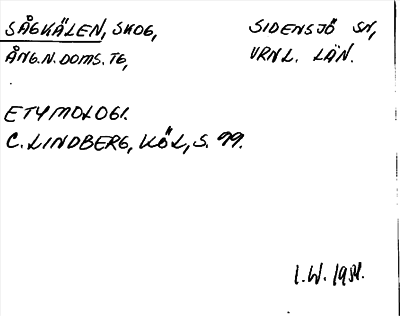 SÅGKÄLEN, SKOG, SIDENSJÖ SN,
ÅNG.N.DOMS.TG, VRNL. LÄN.
ETYMOLOGI.
C. LINDBERG, KÖL, S. 99.
I.W. 1981.